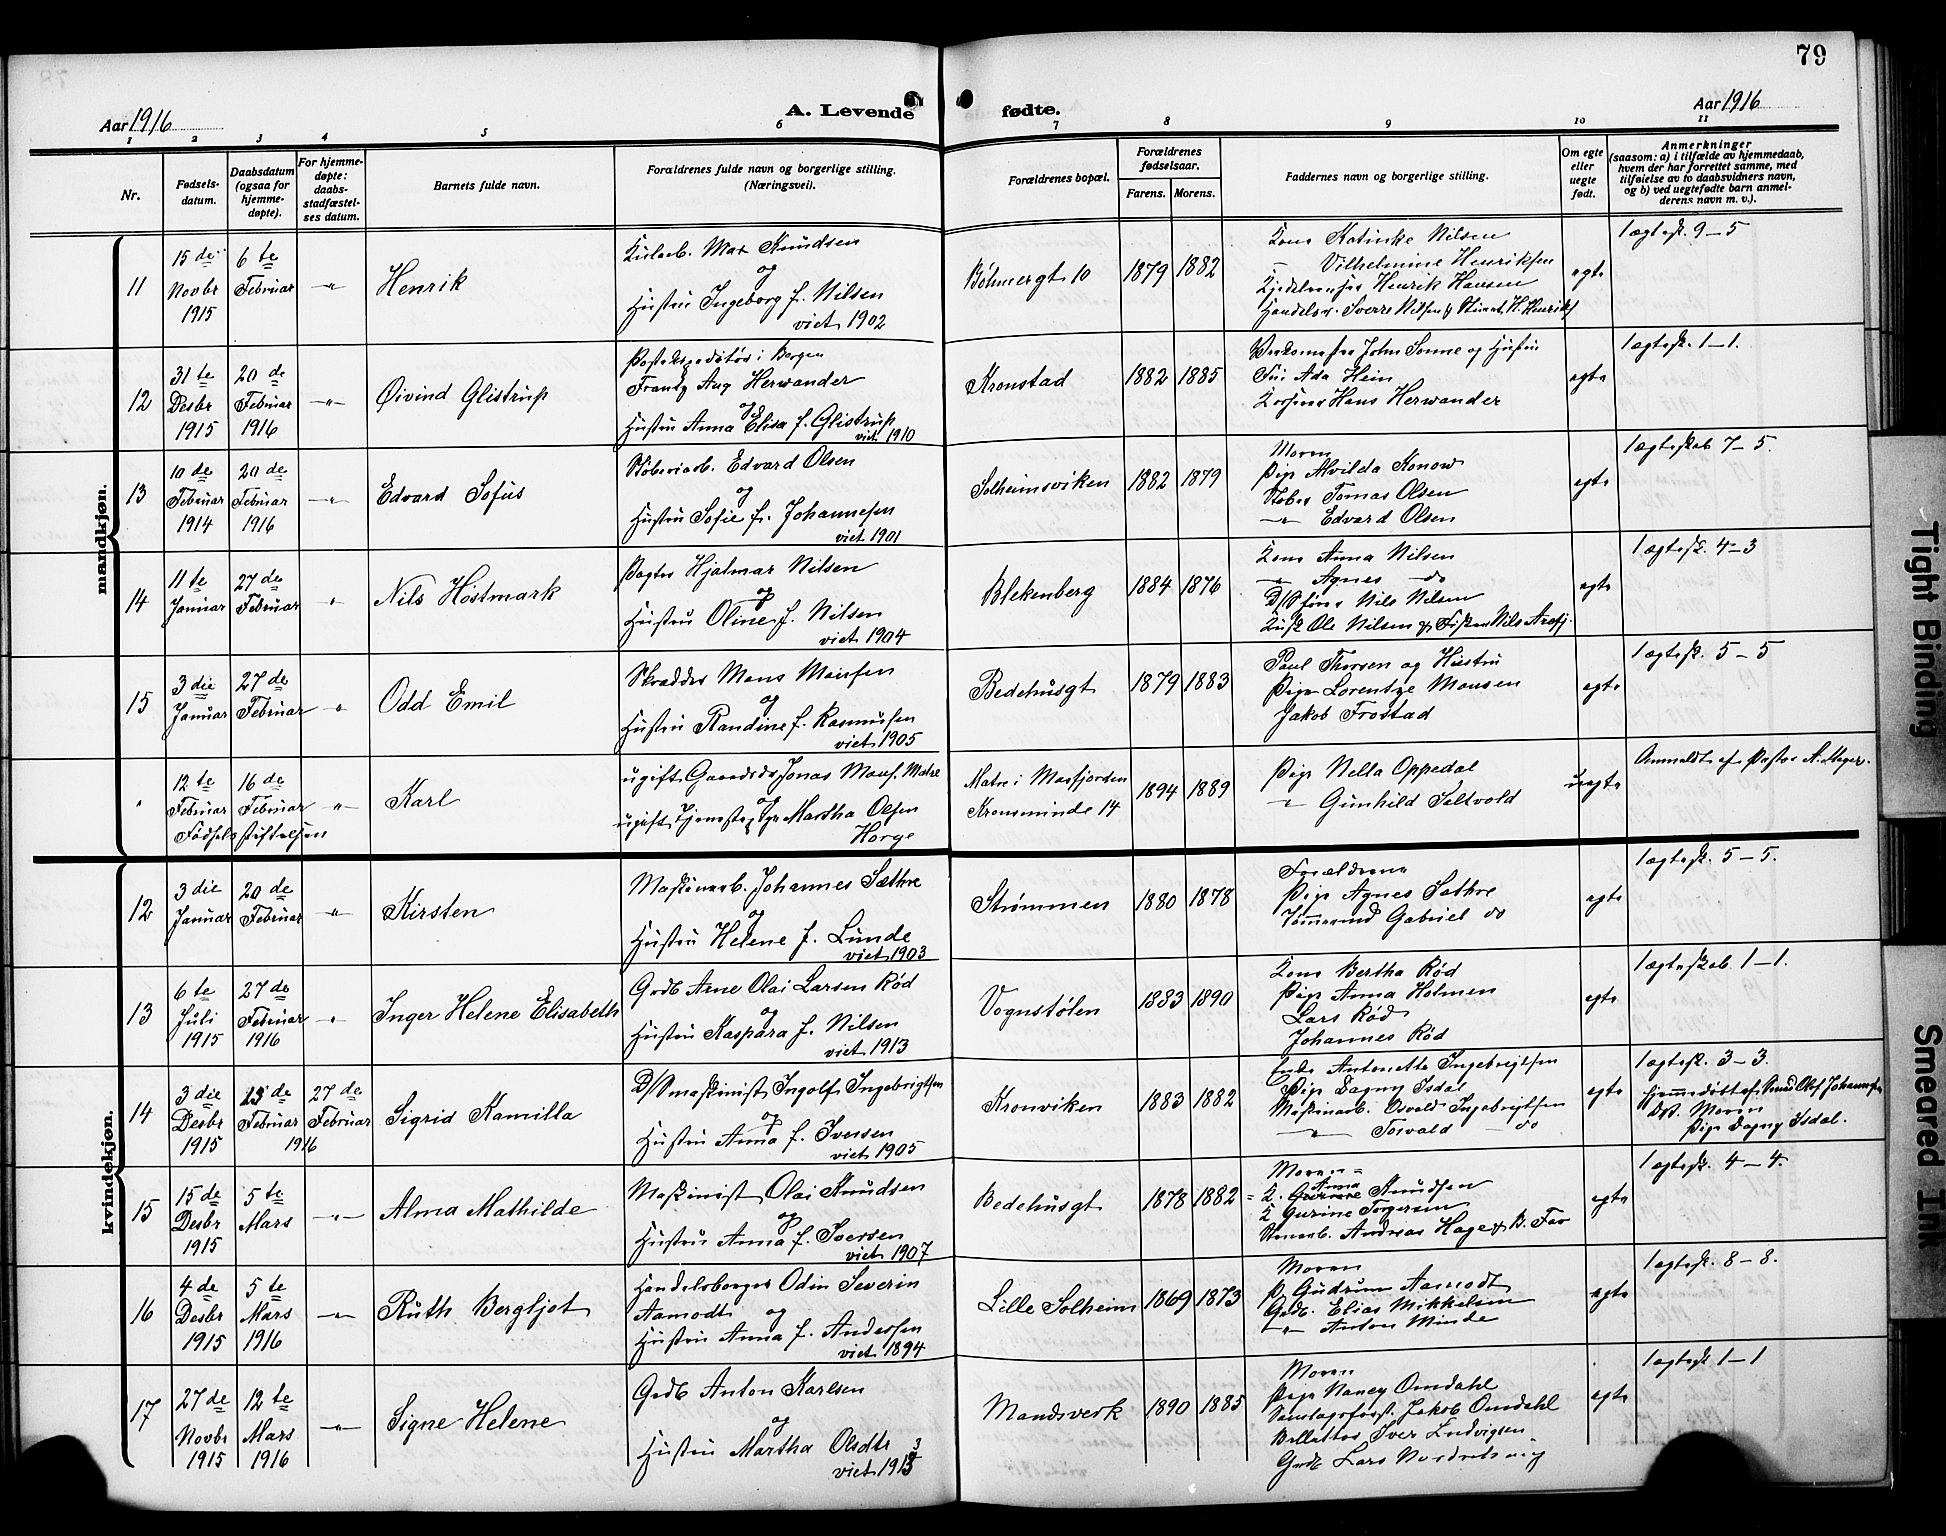 79
Aar 1916
A. Levende fødte.
Aar 1916
1 2 3 4 5 6 7 8 9 10 11
Nr.
Fødsels-
datum.
Daabsdatum
(ogsaa for
hjemme-
døpte).
For hjemme-
døpte:
daabs-
stadfæstel-
ses datum.
Barnets fulde navn.
Forældrenes fulde navn og borgerlige stilling.
(Næringsvei).
Forældrenes bopæl.
Forældrenes
fødselsaar.
Farens. Morens.
Faddernes navn og borgerlige stilling.
Om egte
eller
uegte
født.
Anmerkninger
(saasom: a) i tilfælde av hjemmedaab,
hvem der har forrettet samme, med
tilføielse av to daabsvidners navn,
og b) ved uegtefødte barn anmel-
derens navn m. v.).
mandkjøn.
11
15 de
Novbr
1915
6 te
Februar
-"-
Henrik
Max Knudsen
og
Hustru Ingeborg f. Nilsen
viet 1902
Bøhmergt 10
1879 1882
Kone Katinke Nilsen
— Vilhelmine Henriksen
Henrik Hansen
Sverre Nilsen &
egte
1 ægtesk. 9-5
12
31 te
Desbr
1915
20 de
Februar
1916
-"-
Øivind Glistrup
Postekspeditør i Bergen
Frantz Aug Herwander
og
Hustru Anna Elisa f. Glistrup
viet 1910
Kronstad
1882 1885
John Sonne og Hustru
Frk Ada Hein
Hans Herwander
egte
1 ægtesk. 1-1.
13
10 de
Februar
1914
20 de
Februar
1916
-"-
Edvard Sofus
Støberiarb. Edvard Olsen
og
Hustru Sofie f. Johannesen
viet 1901
Solheimsviken
1882 1879
Moren
Pige Alvilda Konow
Støber Tomas Olsen
-"- Edvard Olsen
egte
1 ægteskab 7-5.
14
11 te
Januar
27 de
Februar
"
Nils Høstmark
Hjalmar Nilsen
og
Hustru Oline f. Nilsen
viet 1904
Blekenberg
1884 1876
Kone Anna Nilsen
-"- Agnes do
Nils Nilsen
Kusk Ole Nilsen & Fisker Nils
egte
1 ægtesk. 4-3
15
3 die
Januar
27 de
Februar
"
Odd Emil
Skrædder Mons Monsen
og
Hustru Randine f. Rasmussen
viet 1905
Bedehusgt
1879 1883
Paul Thorsen og Hustru
Pige Lorentze Monsen
Jakob Frostad
egte
1 ægtesk. 5-5
"
12 te
Februar
16 de
Februar
Fødselsstiftelsen
"
Karl
ugift Gaardsdr Jonas Mons. Matre
og
ugift Tjenestepige Martha Olsen
Horge
Matre i Masfjorden
Kronsminde 14
1894 1889
Pige Nella Oppedal
-"- Gunhild Saltvold
uegte
Anmeldt af Pastor A. Meyer.
kvindekjøn.
12
3 die
Januar
20 de
Februar
"
Kirsten
Maskinarb. Johannes Sæthre
og
Hustru Helene f. Lunde
viet 1903
Strømmen
1880 1878
Forældrene
Pige Agnes Sæthre
Tømmermd Gabriel do
egte
1 ægtesk. 5-5.
13
6 te
Juli
1915
27 de
Februar
1916
"
Inger Helene Elisabeth
Grdb Arne Olai Larsen Rød
og
Hustru Kaspara f. Nilsen
viet 1913
Vognstølen
1883 1890
Kone Bertha Rød
Pige Anna Holmen
Lars Rød
Johannes Rød
egte
1 ægteskab 1-1.
14
3 die
Desbr
1915
13 de
Februar
27 de
Februar
1916
Sigrid Kamilla
D/Smaskinist Ingolf Ingebrigtsen
og
Hustru Anna f. Iversen
viet 1905
Kronviken
1883 1882
Enke Antonette Ingebrigtsen
Pige Dagny Isdal
Maskinarb. Osvald Ingebrigtsen
-"- Torvald - do
egte
1 ægtesk. 3-3.
Hjemmedøbt af Olaf Johannesen
Moren
Pige Dagny Isdal.
15
15 de
Desbr
1915
5 te
Mars
-"-
Alma Mathilde
Maskinist Olai Knudsen
og
Hustru Anna f. Iversen
viet 1907
Bedehusgt
1878 1882
Moren
Anna
K. Gurine Knudsen
K Gurine Torgersen
Andreas Hage & B. Fav
egte
1 ægtesk. 4-4.
16
4 de
Desbr
1915
5 te
Mars
1916
-"-
Ruth Bergljot
Handelsborger Odin Severin
Aamodt og
Hustru Anna f. Andersen
viet 1894
Lille Solheim
1869 1873
Moren
P. Gudrun Aamodt
Grdb. Elias Mikkelsen
-"- Anton Minde
egte
1 ægtesk. 8-8.
17
27 de
Novbr
1915
12 te
Mars
1916
-"-
Signe Helene
Grdb Anton Karlsen
og
Hustru Martha Olsdtr
viet 1913
Mandsverk
1890 1885
Moren
Pige Nancy Omdahl
Jakob Omdahl
Iver Ludvigsen
Grdb Lars
egte
1 ægtesk 1-1
Tight Binding
Smeared Ink